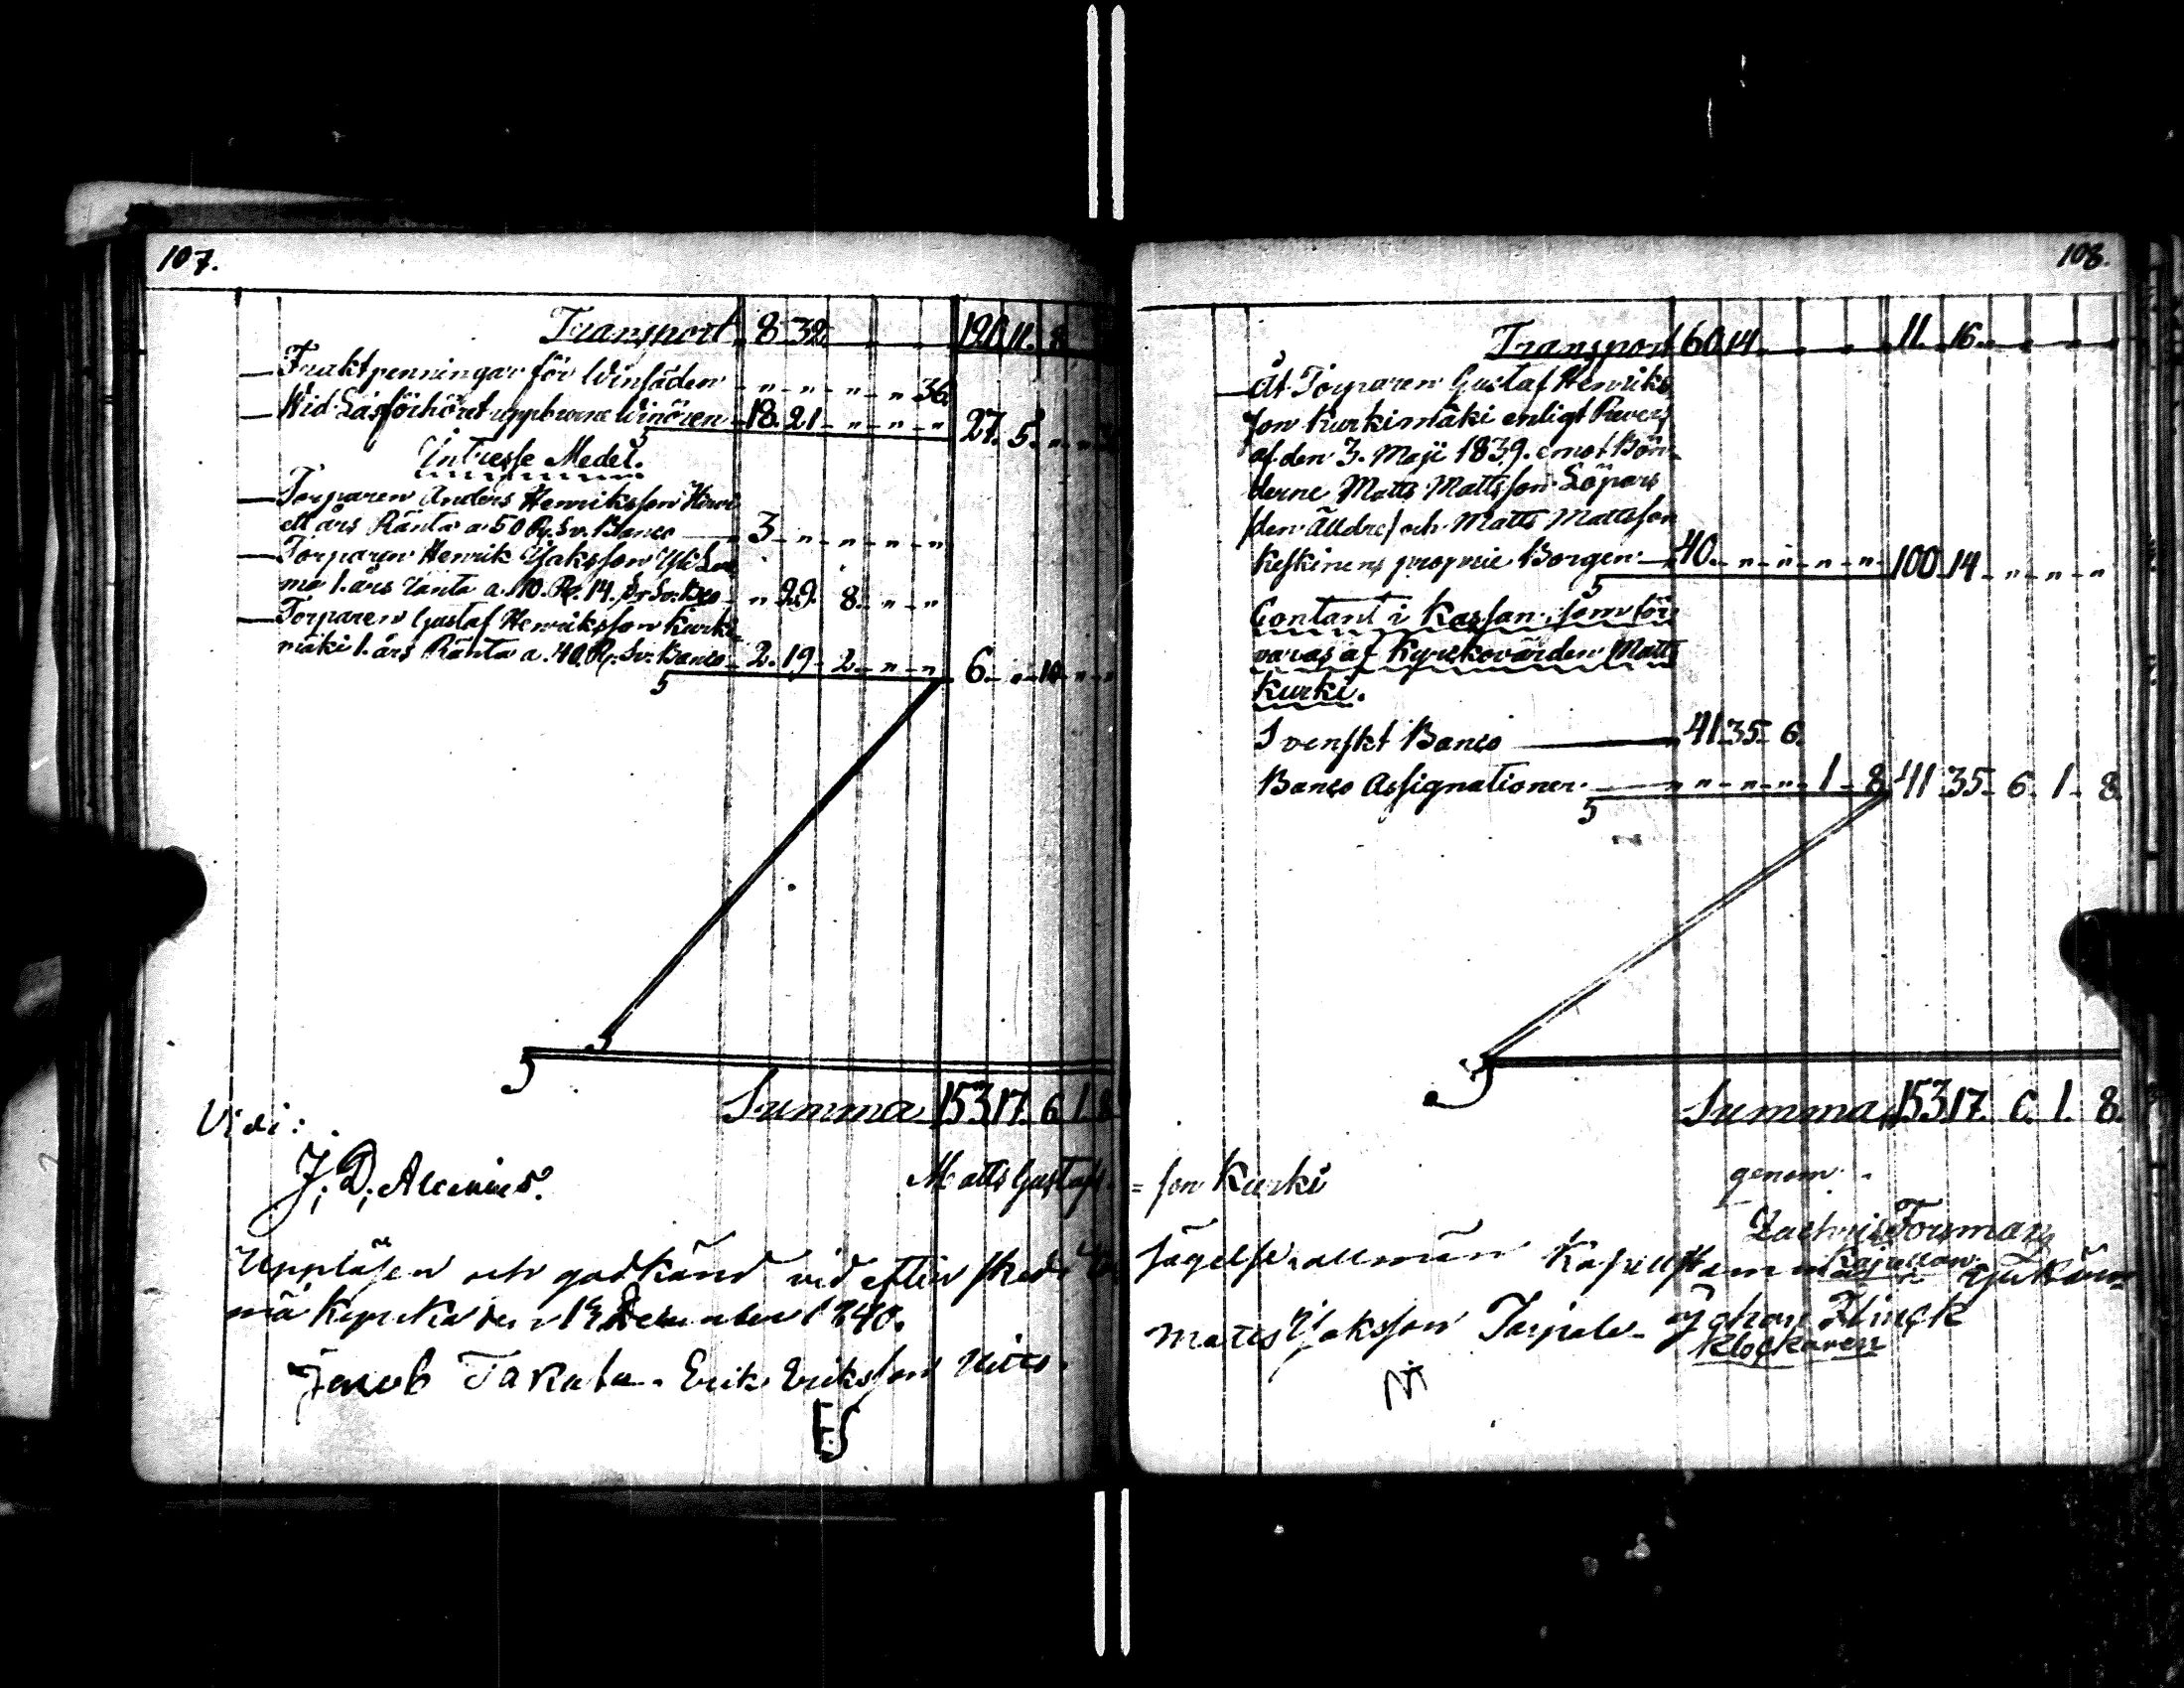 107.
Transport 8. 32. 120. 11. 8
— Fraktpenningar för Winsäden - " - " - " - " 36.
— Wid Läsförhöret uppburne Winören 18. 21 - " - " - " 27. 5. " - "
Intresse Medel.
— Torparen Anders Henriksson
ett års Ränta a 50 Rg. Sv. Banco — 3 - " - " - " - "
— Torparen Henrik Isaksson
mo 1. års ränta a. 10. R. 14. s. Sv. Bco - " 29. 8. " - "
— Torparen Gustaf Henriksson Kurki-
mäki 1. års Ränta a. 40. Rg. Sv. Banco - 2. 19. 2. " - " 6. " 10 " - "
Summa 153 17. 6. 1. 8
Vidi:
J. D. Alcenius.
Matts Gustafs
Uppläsen och godkänd vid efter sked
mä Kyrcka den 13 December 1840.
Jacob Takala. Erik Eriksson
ES
108.
Transport 60. 14 11. 16.
— Åt Torparen Gustaf Henriks
son Kurkimäki enligt Revers
af den 3. Maji 1839. emot Bön-
derne Matts Mattsson Löpars
(den Älldre) och Matts Mattsson
Keskinens proprie Borgen — 40. - " - " - " - " 100 14 - " - " - "
Contant i Kassan, som för
varas af Kyrckovärden Matts
Kurki.
Svenskt Banco — 41. 35. 6.
Banco Assignationer. — " - " - " - 1 - 8. 41 35 - 6. 1 - 8.
Summa 153 17. 6. 1. 8.
= son Kurki genom
Zachris Forsman
Kapellan
sägelse allmän Kapellstämma i
Matts Isaksson Johan Flinck
Klockaren